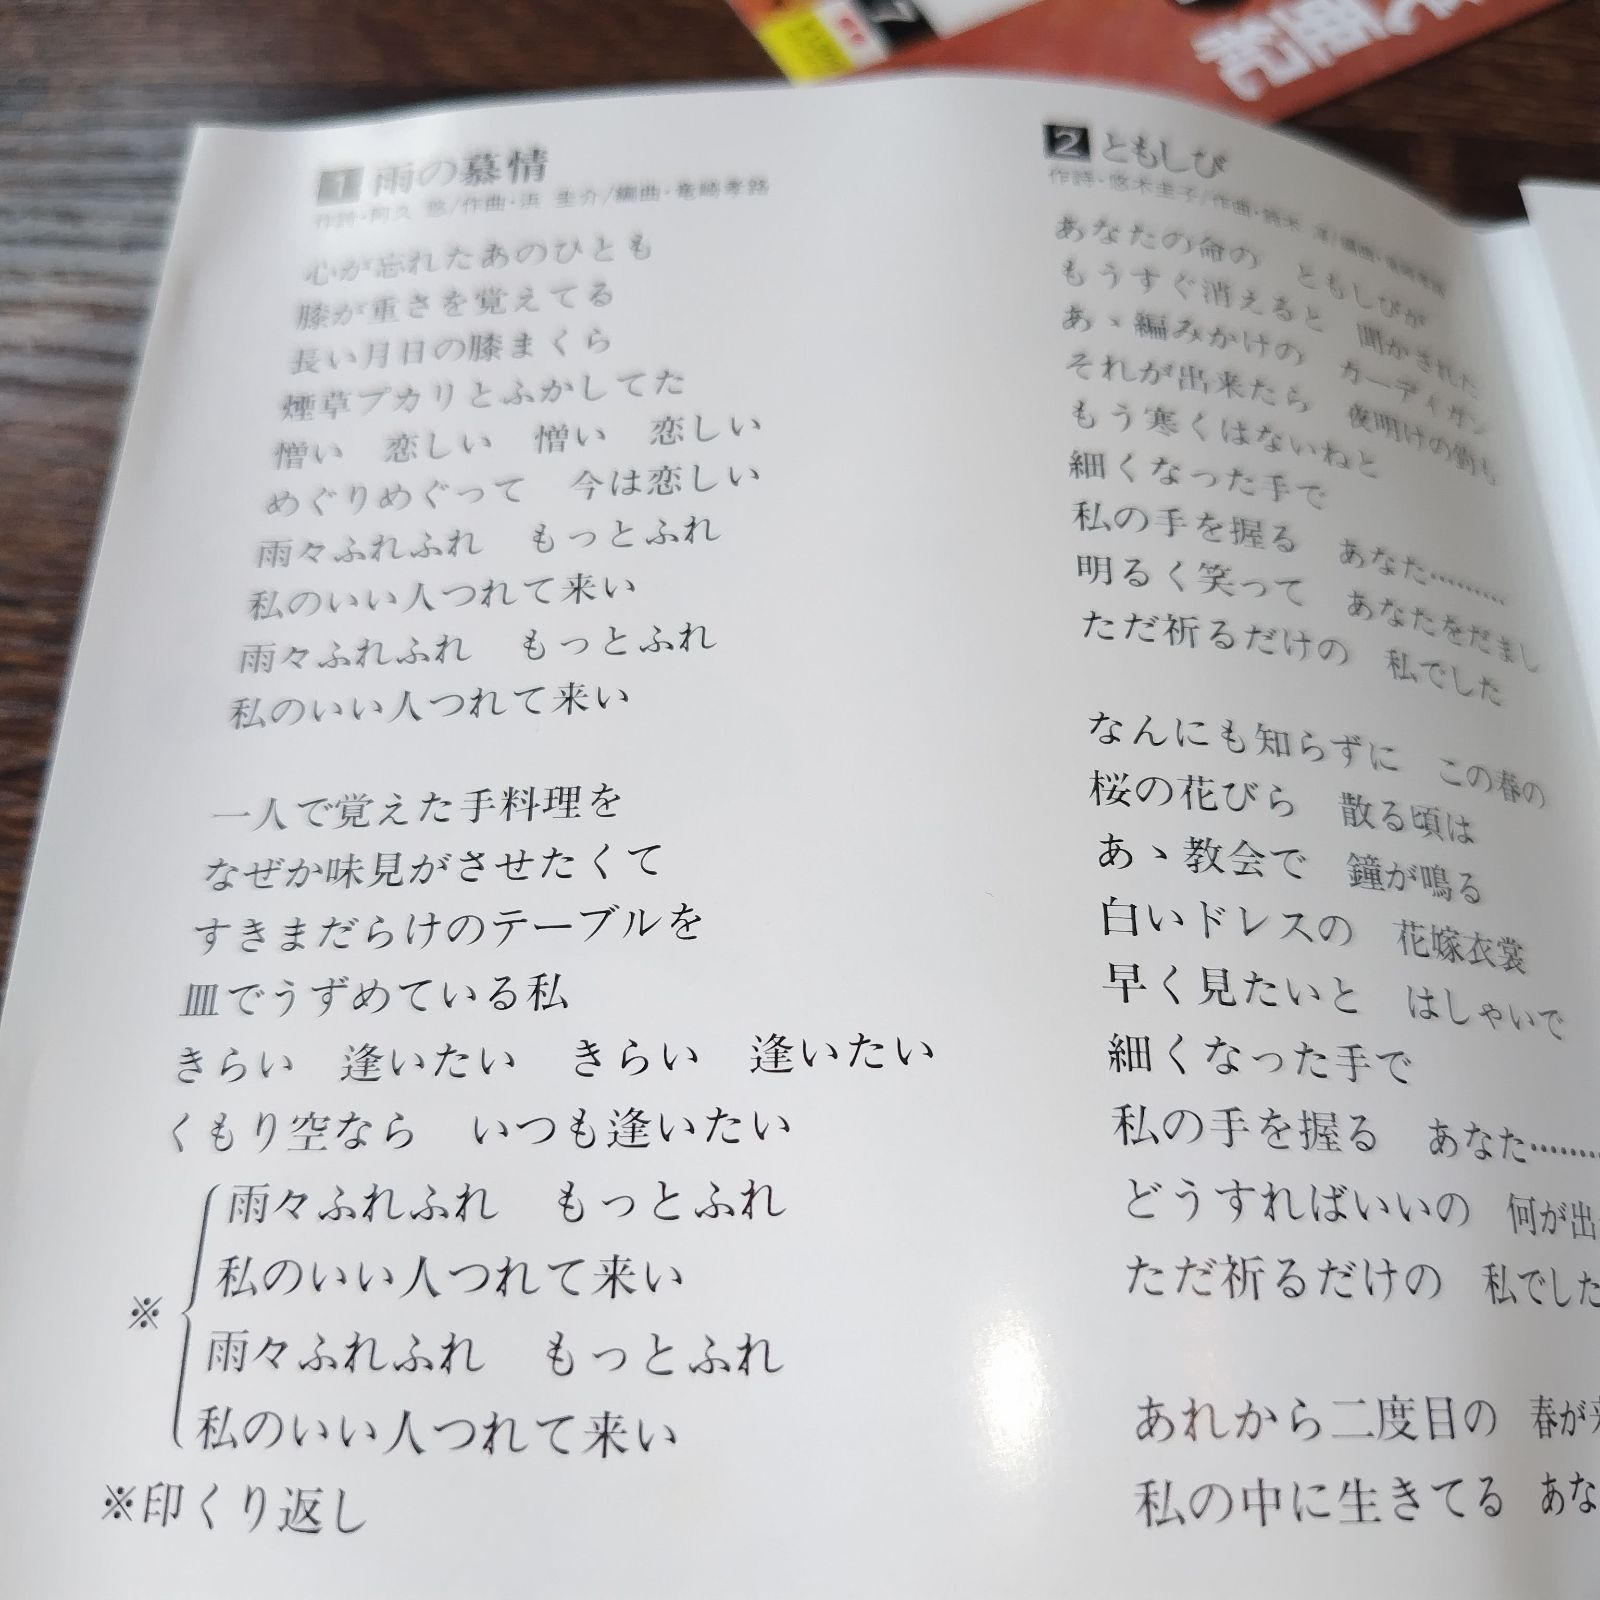 代亜紀
1 雨の慕情
作詩・阿久 悠/作曲・浜 圭介/編曲・竜崎孝路
心が忘れたあのひとも
膝が重さを覚えてる
長い月日の膝まくら
煙草プカリとふかしてた
憎い 恋しい 憎い 恋しい
めぐりめぐって 今は恋しい
雨々ふれふれ もっとふれ
私のいい人つれて来い
雨々ふれふれ もっとふれ
私のいい人つれて来い
一人で覚えた手料理を
なぜか味見がさせたくて
すきまだらけのテーブルを
皿でうずめている私
きらい 逢いたい きらい 逢いたい
くもり空なら いつも逢いたい
※
雨々ふれふれ もっとふれ
私のいい人つれて来い
雨々ふれふれ もっとふれ
私のいい人つれて来い
※印くり返し
2 ともしび
作詩・悠木圭子/作曲・鈴木 淳/編曲・竜崎孝路
あなたの命の ともしびが
もうすぐ消えると 聞かされた
あゝ編みかけの カーディガン
それが出来たら 夜明けの街も
もう寒くはないねと
細くなった手で
私の手を握る あなた………
明るく笑って あなたをだまし
ただ祈るだけの 私でした
なんにも知らずに この春の
桜の花びら 散る頃は
あゝ教会で 鐘が鳴る
白いドレスの 花嫁衣裳
早く見たいと はしゃいで
細くなった手で
私の手を握る あなた………
どうすればいいの 何が出
ただ祈るだけの 私でした
あれから二度目の 春が
私の中に生きてる あな